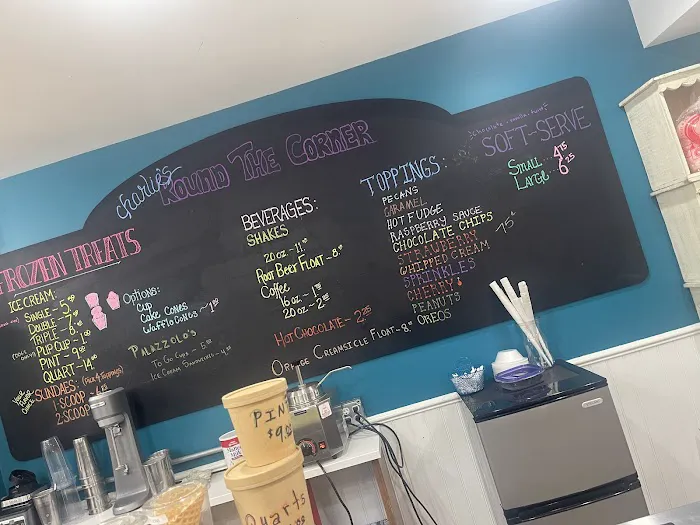 charlie's
ROUND THE CORNER
FROZEN TREATS
ICE CREAM:
SINGLE - 5.
DOUBLE -
TRIPLE - 8.
PUP CUP - 1.
PINT - 9.
QUART - 14.
SUNDAES: (PICK 4 TOPPINGS)
1 SCOOP
2 SCOOP
OPTIONS:
CUP
CAKE CONES
WAFFLE CONES ~ 1
PALAZZOLO'S
TO GO CUPS -
ICE CREAM SANDWICHES -
BEVERAGES:
SHAKES
20 OZ. ~ 11.
ROOT BEER FLOAT - 8.
COFFEE
16 OZ ~ 1.
20 OZ ~ 2.
HOT CHOCOLATE - 2.25
ORANGE CREAMSICLE FLOAT - 8.
TOPPINGS:
PECANS
CARAMEL
HOT FUDGE
RASPBERRY SAUCE
CHOCOLATE CHIPS
STRAWBERRY
WHIPPED CREAM
SPRINKLES
CHERRY
PEANUTS
OREOS
75¢
SOFT-SERVE
SMALL ... 4.75
LARGE ... 6.25
PINT
$9.00
Quarts